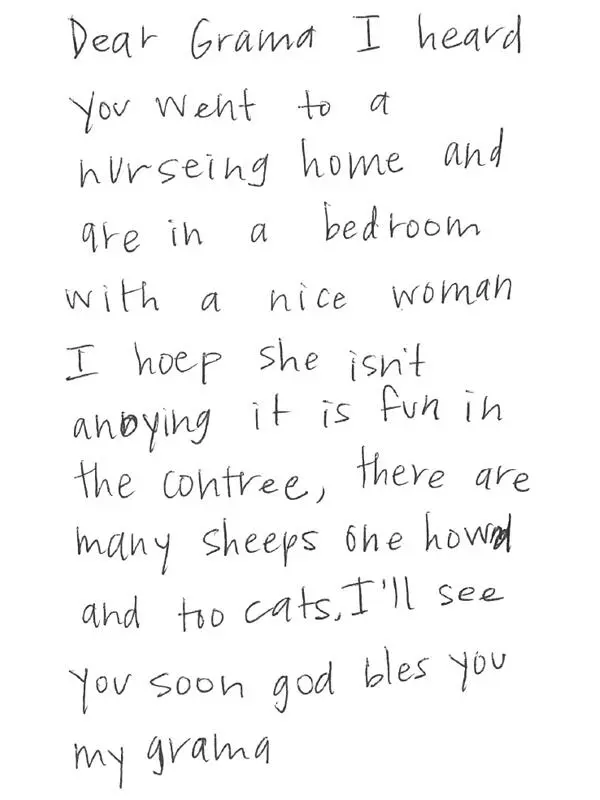 Dear Grama I heard
you went to a
nurseing home and
are in a bedroom
with a nice woman
I hoep she isn't
anoying it is fun in
the contree, there are
many sheeps one hownd
and too cats, I'll see
you soon god bles you
my grama